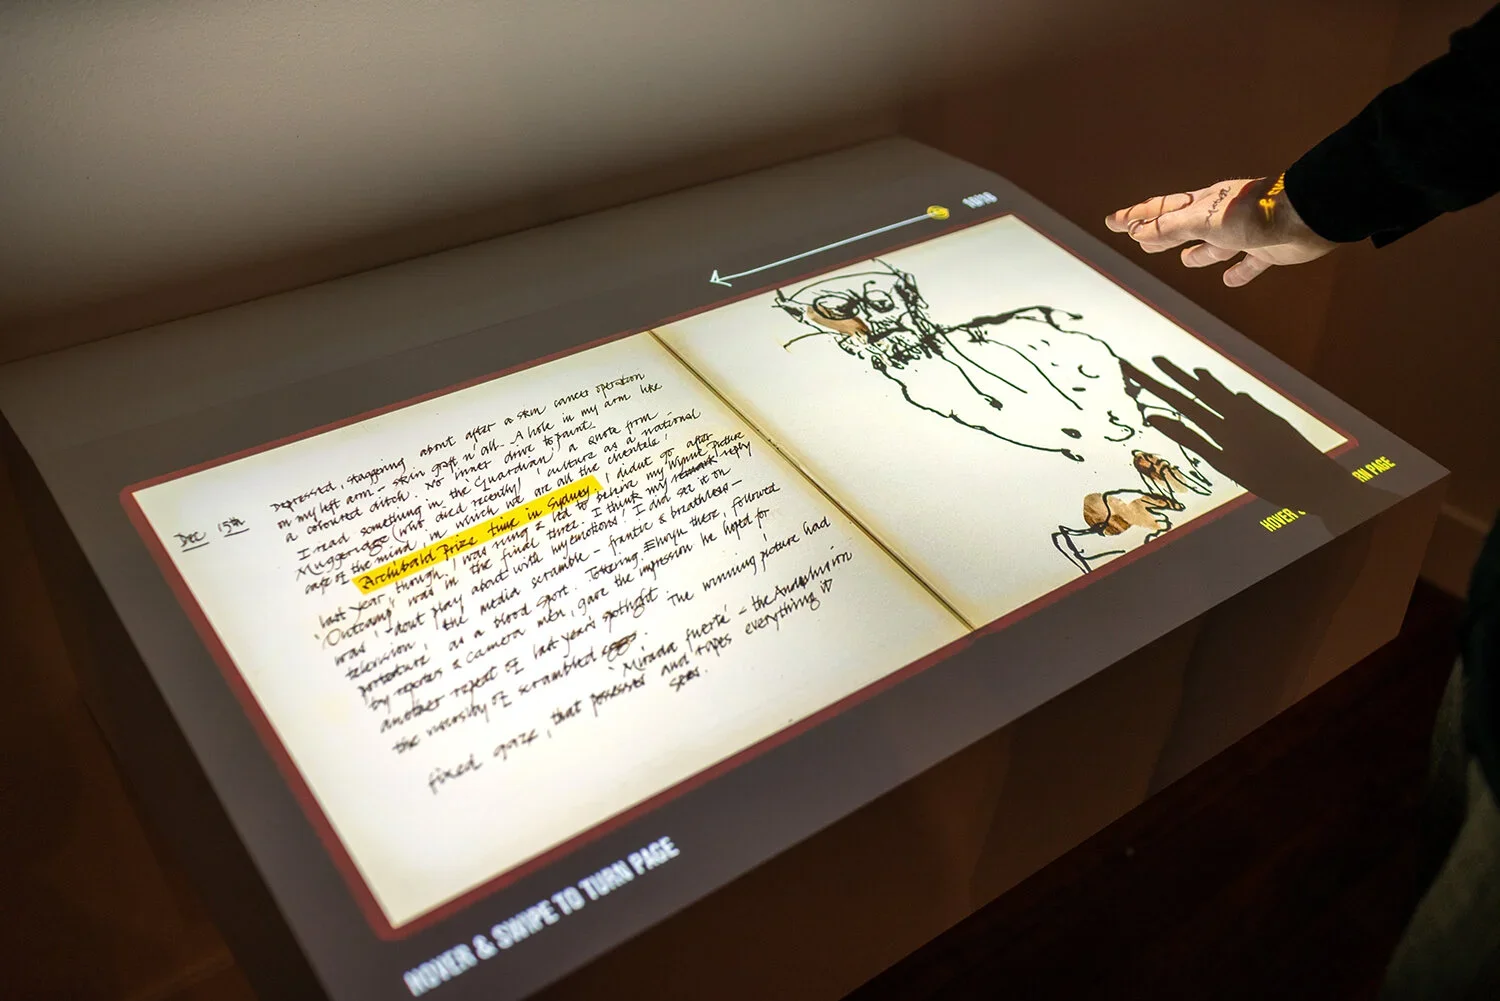 10/16
Dec 15th
Depressed, staggering about after a skin cancer operation
on my left arm – skin graft n' all. A hole in my arm like
a coloured ditch. No inner drive to paint.
I read something in the Guardian, a quote from
Muggeridge (who died recently) 'culture as a national
cafe of the mind, in which we are all the clientele'.
Archibald Prize time in Sydney. I didn't go after
last year, though, I was rung & I'd to believe my Wynne picture
'Outcamp' was in the final three. I think my reply
was 'don't play about with my emotions'. I did see it on
television, the media scramble – frantic & breathless –
portraiture as a blood sport. Tottering Elwyn there, followed
by reporters & camera men, gave the impression he hoped for
another repeat of last year's spotlight. The winning picture had
the viscosity of scrambled
Mirada fuerte – the Andalusian
fixed gaze, that possesses and rapes everything it
sees.
HOVER & SWIPE TO TURN PAGE
HOVER RN PAGE